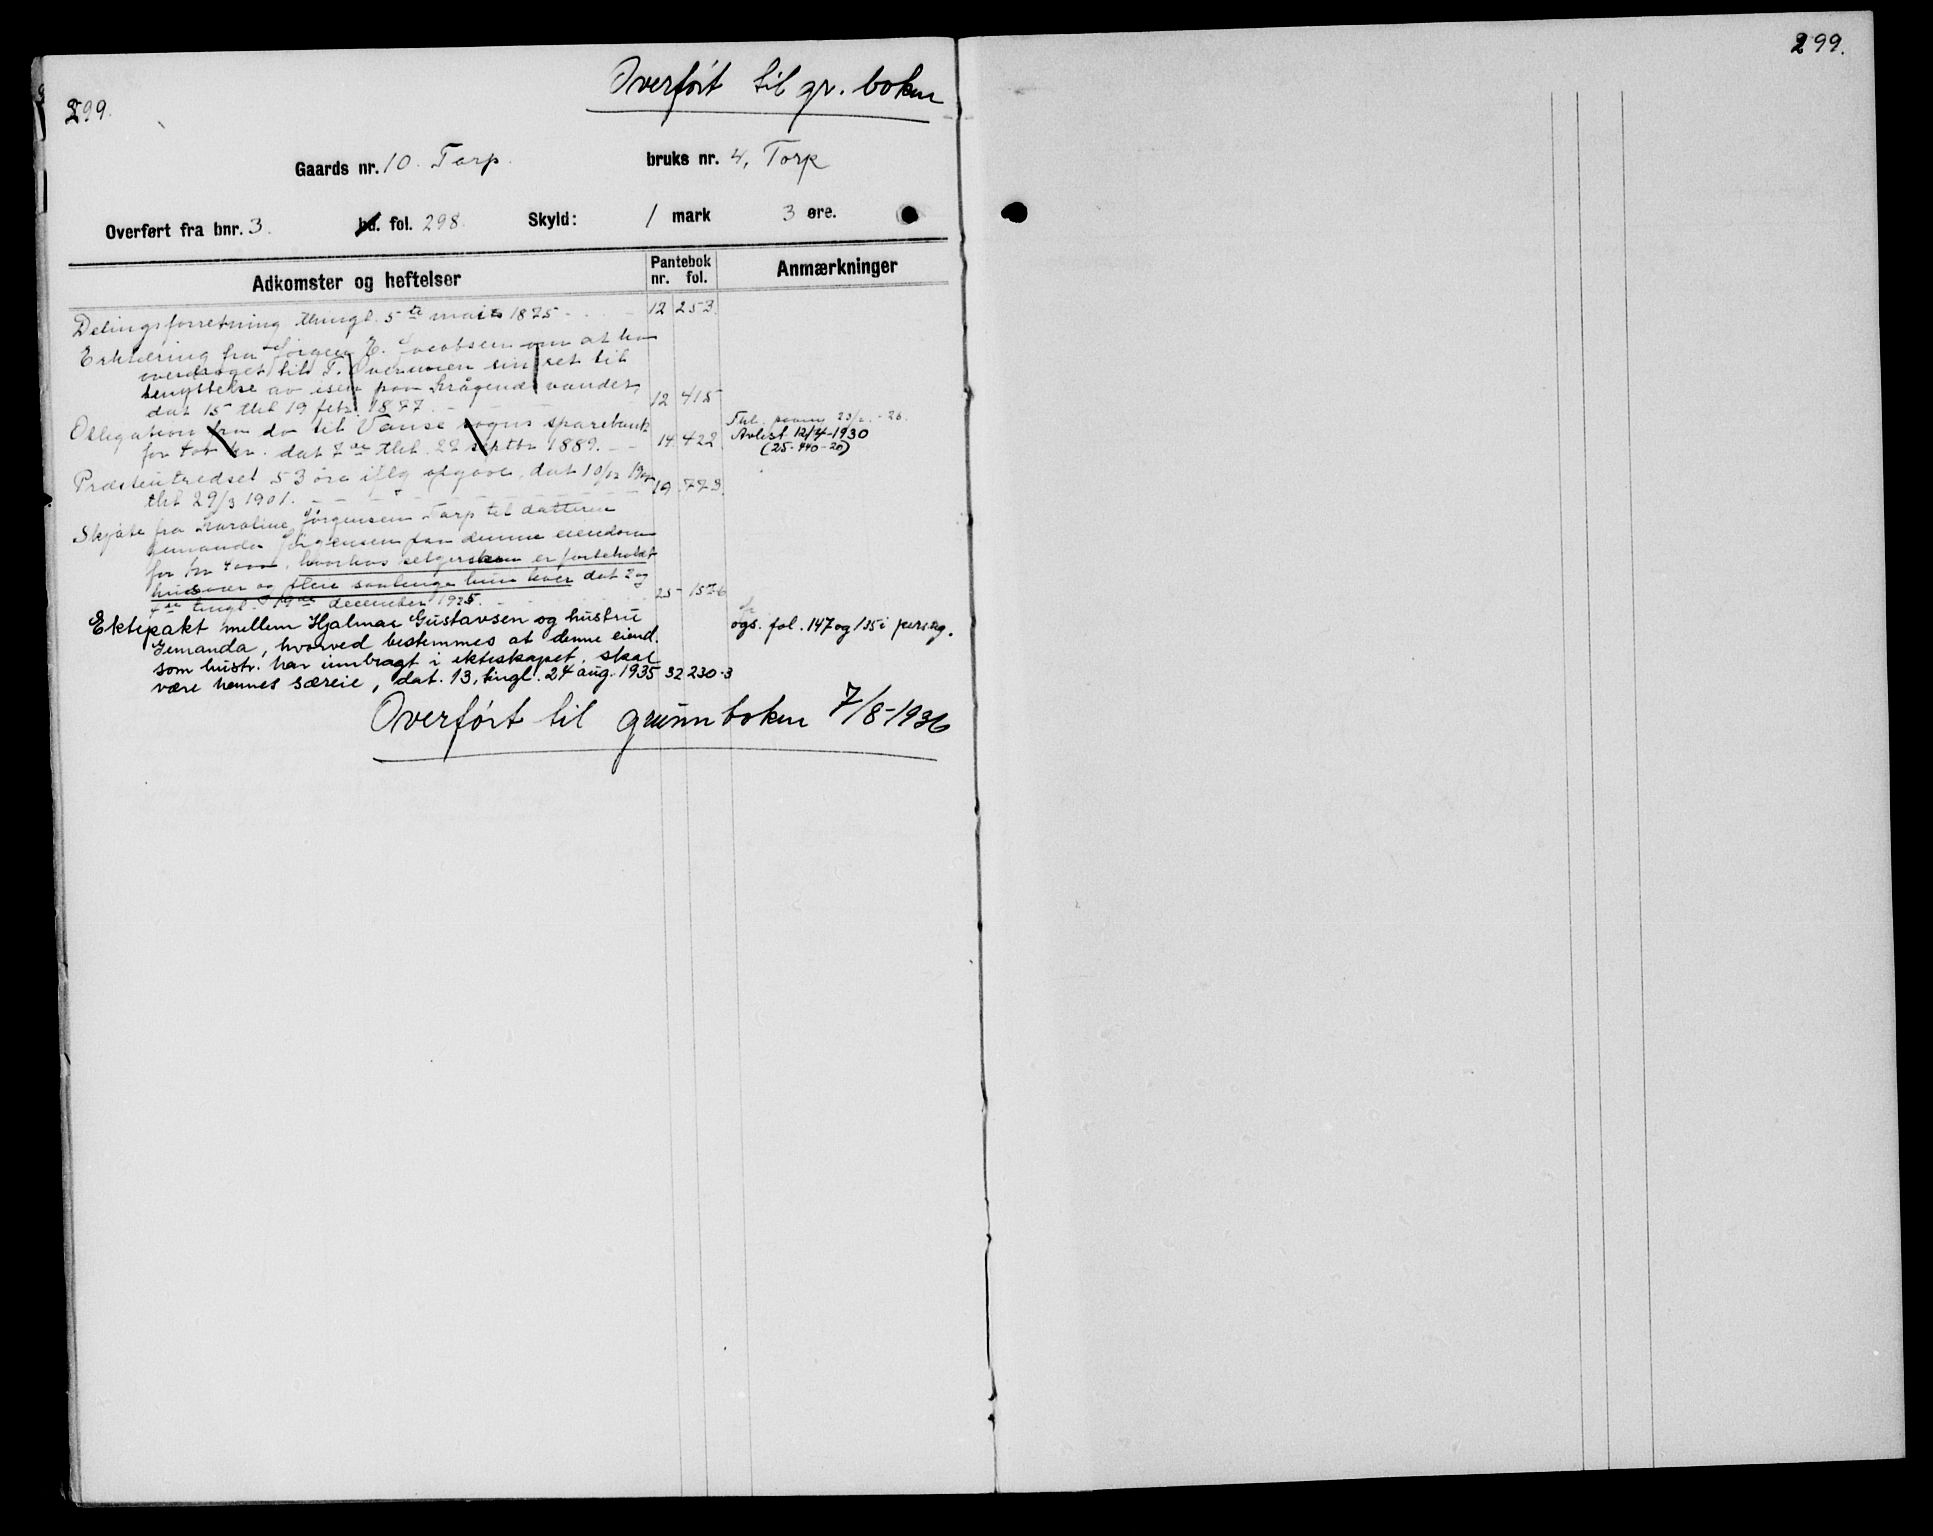 299.
Overført til gr. boken
299.
Gaards nr. 10. Tarp. bruks nr. 4, Torp
Overført fra bnr. 3. bd. fol. 298. Skyld: 1 mark 3 øre.
Adkomster og heftelser Pantebok nr. fol. Anmærkninger
Delingsforretning thingl. 5te marts 1875 12 253.
Erklæring fra Jørgen E. Jacobsen om at ha
overdraget til T. sin ret til
benyttelse av isen paa vandet,
dat 15 thl 19 febr. 1877. 12 415
Obligation fra do til Vanse sogns sparebank
for 400 kr. dat thl. 22 septbr 1889. 14 422
Thl. 23/2 - 26.
Avlest 12/4-1930
(25-440-20)
Presteutredsel 53 øre iflg opgave, dat 10/12
thl 29/3 1901. 19 773.
Skjøte fra Karoline Jørgensen Tarp til datteren
Gemanda Jørgensen paa denne eiendom
for kr 4000, hvorhos selgersken er forbeholdt
husvær og pleie saalenge hun lever dat 2 og
4de tingl. december 1925. 25 1576
Ektepakt mellem Hjalmar Gustavsen og hustru
Gemanda, hvorved bestemmes at denne eiend.
som hustr. har innbragt i ekteskapet, skal
være hennes særeie, dat. 13, tingl. 24 aug. 1935 32 230-3
ogs. fol. 147 og 135 i persreg.
Overført til grunnboken 7/8-1936